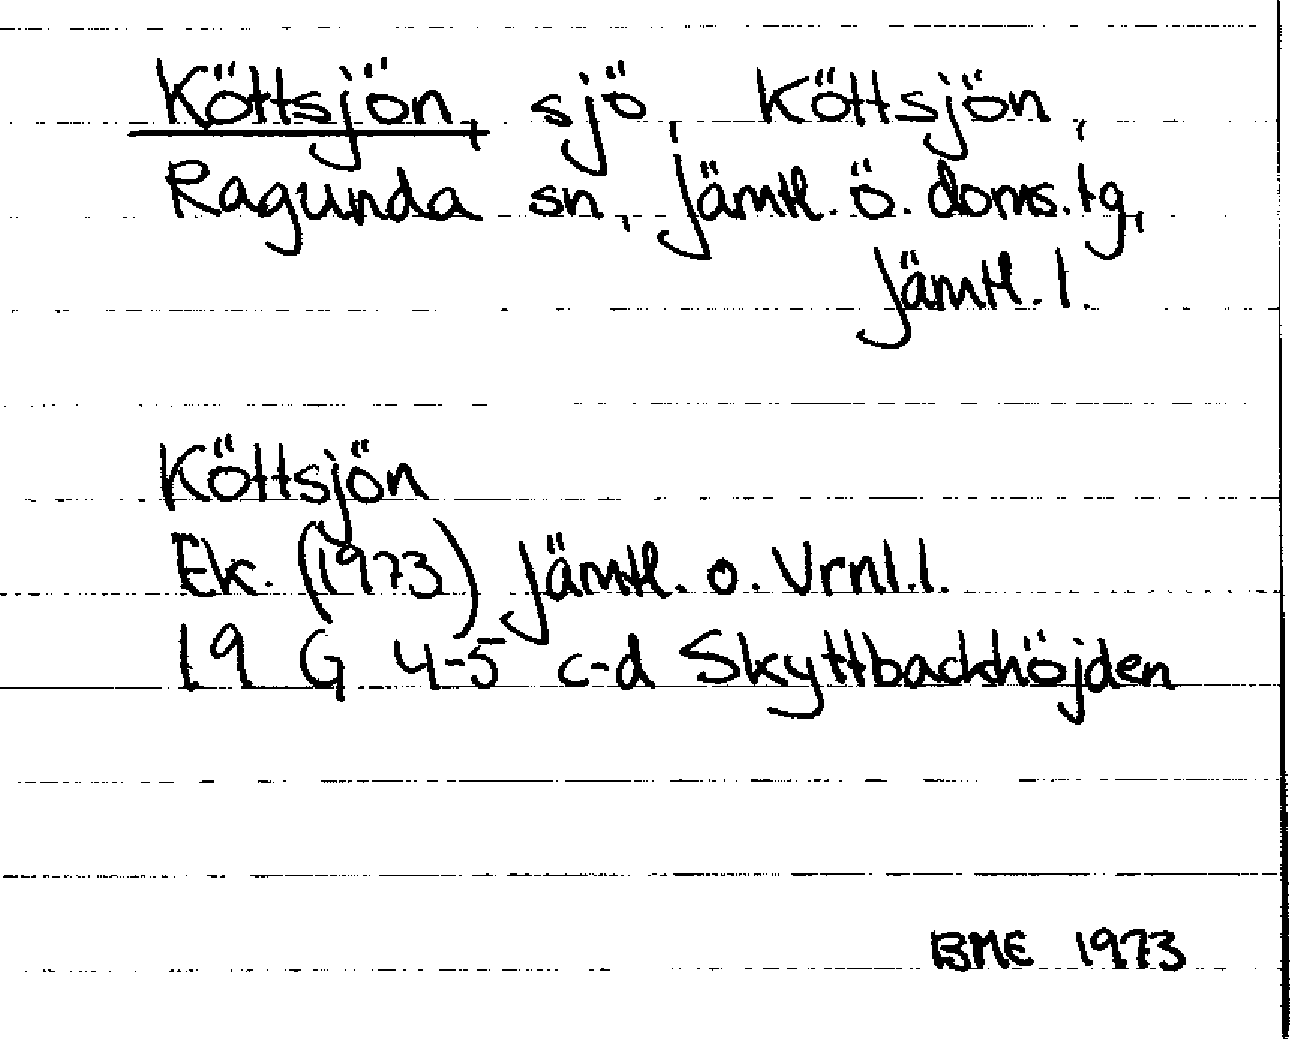 Köttsjön, sjö, Köttsjön,
Ragunda sn, Jämtl. ö. doms.tg,
Jämtl. l.
Köttsjön
Ek. (1973) Jämtl. o. Vrnl.l.
19 G 4-5 c-d Skyttbackhöjden
BME 1973